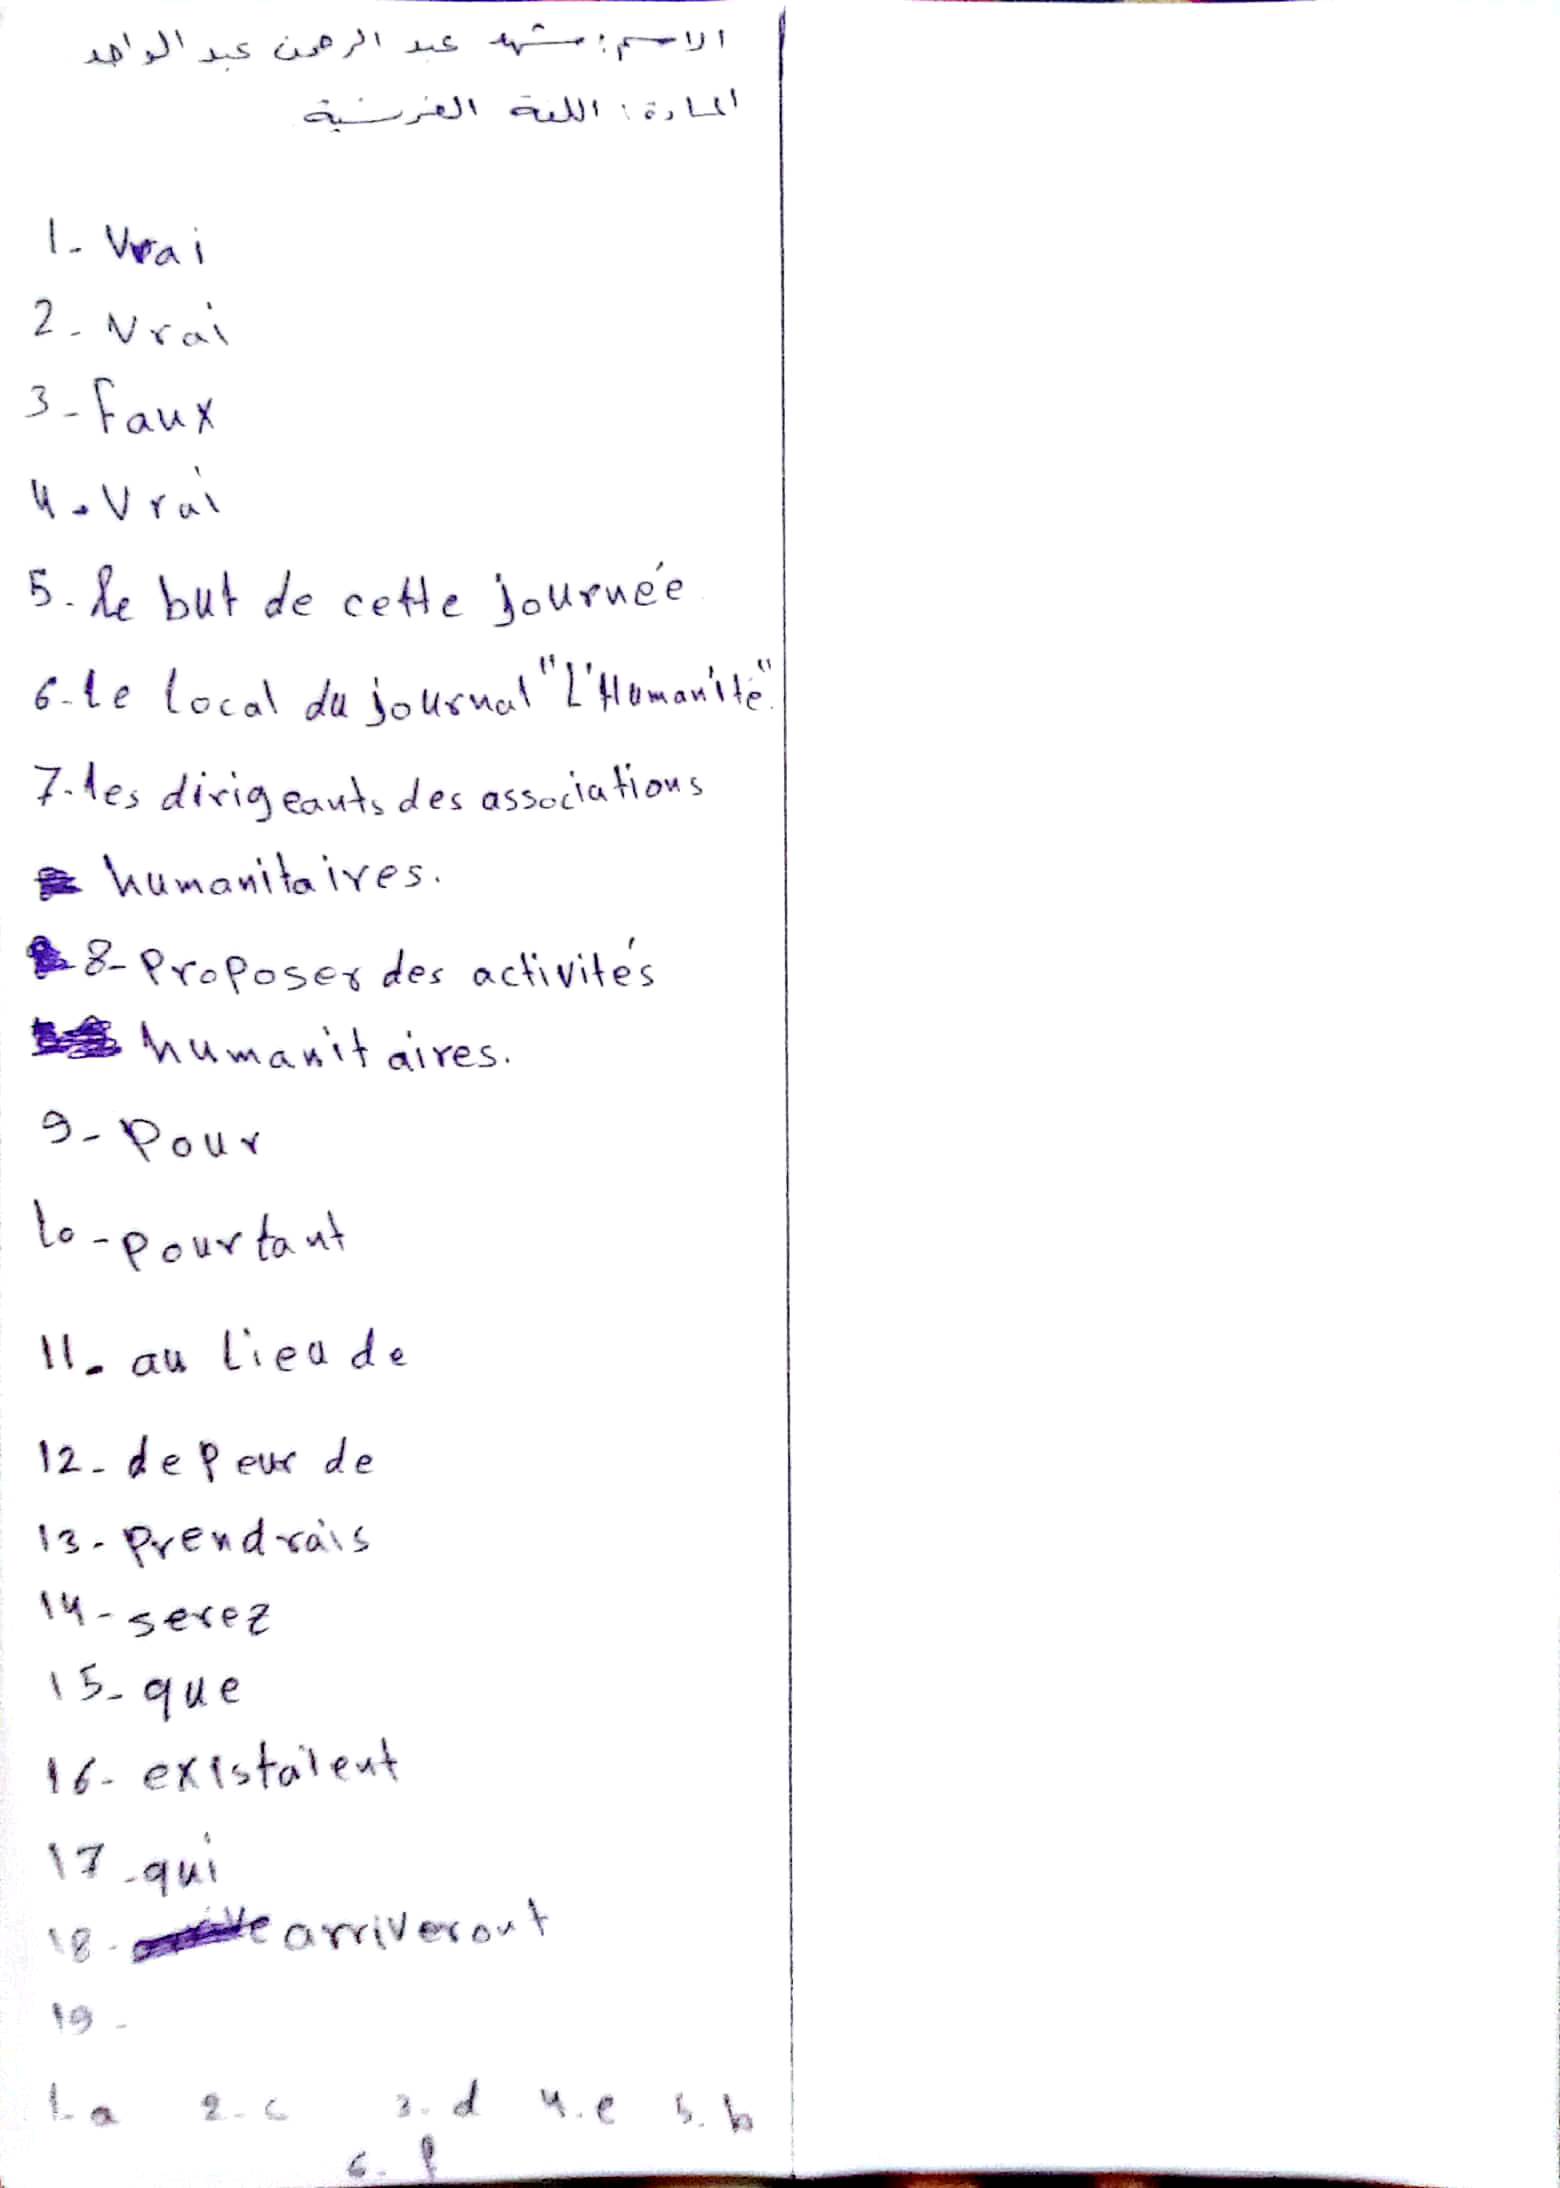 الاسم: شهد عبد الرحمن عبد الواحد
المادة: اللغة الفرنسية
1- Vrai
2- Vrai
3- Faux
4. Vrai
5. Le but de cette journée
6- Le local du journal "L'Humanité".
7- Les dirigeants des associations
humanitaires.
8- Proposer des activités
humanitaires.
9- Pour
10- pourtant
11. au lieu de
12- de peur de
13- prendrais
14- serez
15- que
16- existaient
17- qui
18- arriveront
19-
1- a 2- c 3- d 4. e 5. b
6- f